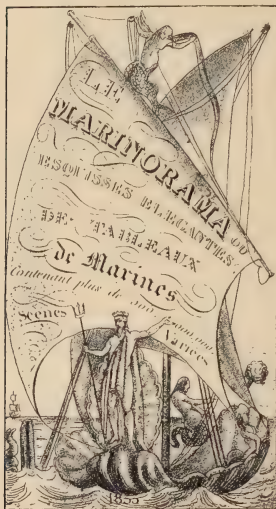 LE
MARINORAMA OU
ESQUISSES ELEGANTES
DE TABLEAUX
de Marines
Contenant plus de
Scènes Variées
1833